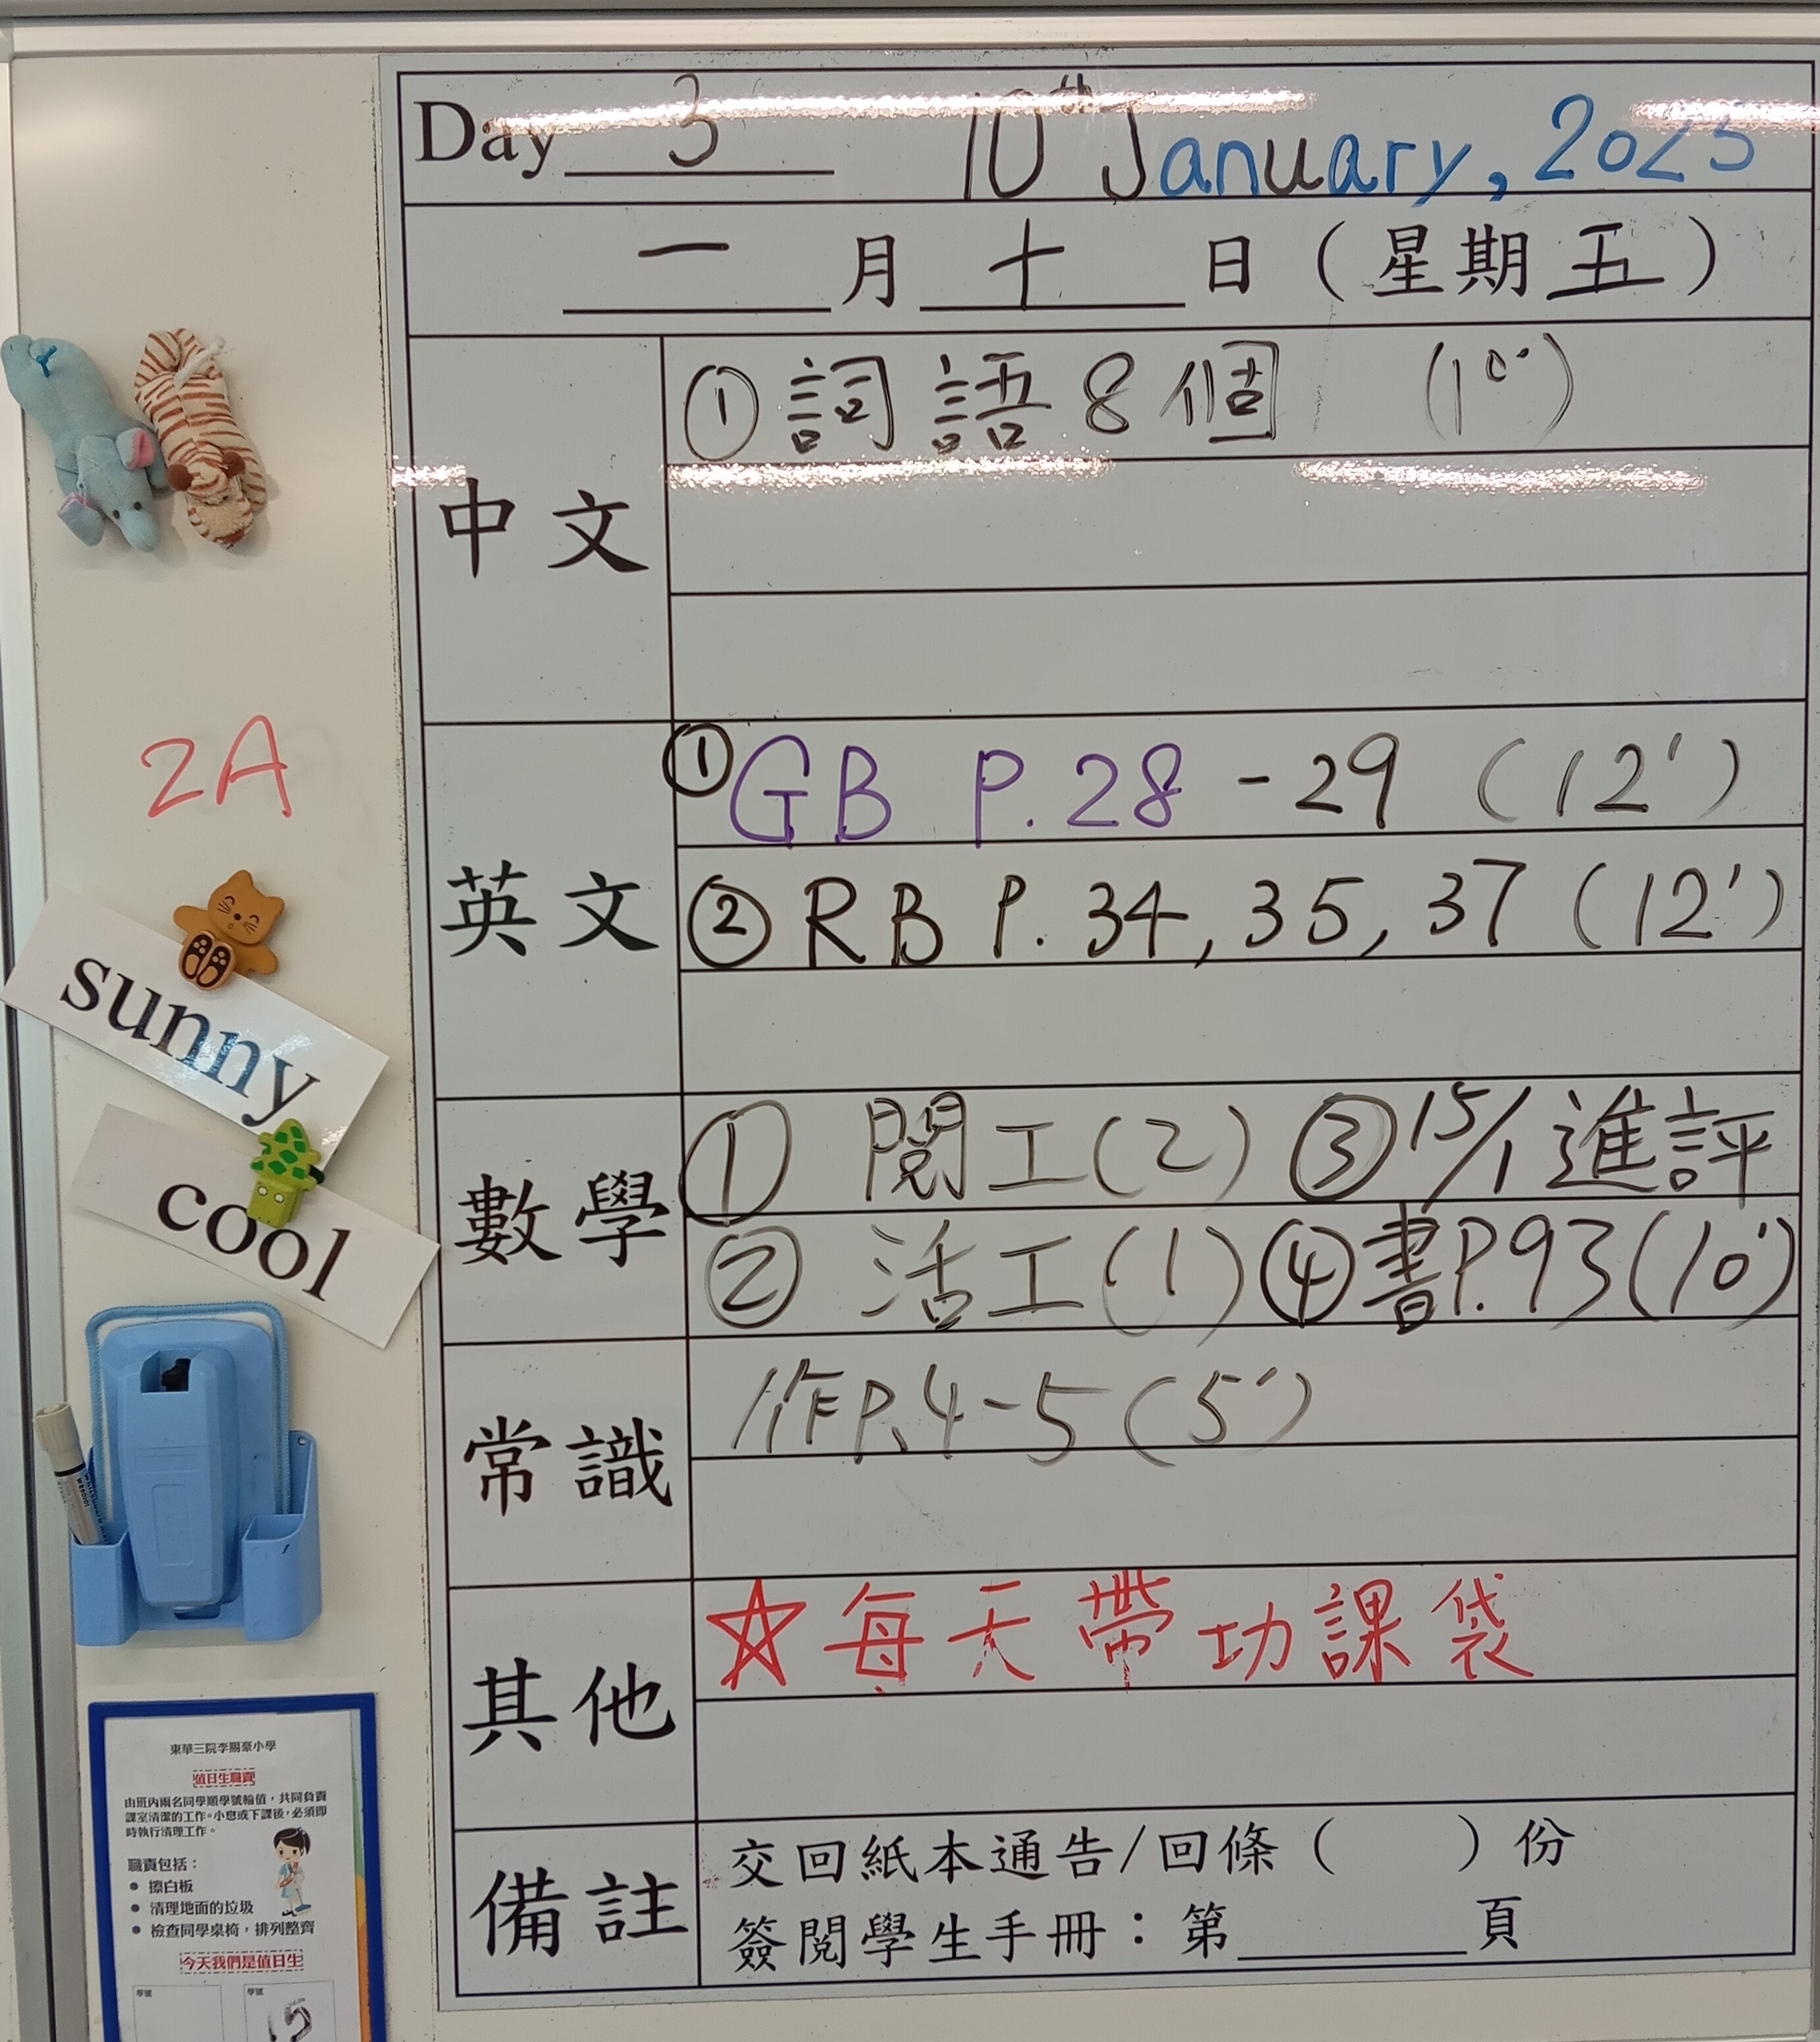 Day 3 10th January, 2025
一月十日（星期五）
中文
①詞語8個 (10')
英文
①GB P.28 - 29 (12')
②RB P. 34, 35, 37 (12')
數學
① 閱工(2) ③15/1進評
② 活工(1) ④書P.93(10')
常識
作P.4-5(5')
其他
☆每天帶功課袋
備註
交回紙本通告/回條（ ）份
簽閱學生手冊：第 頁
2A
sunny
cool
東華三院李賜豪小學
值日生職責
由班內兩名同學順學號輪值，共同負責
課室清潔的工作。小息或下課後，必須即
時執行清理工作。
職責包括：
● 擦白板
● 清理地面的垃圾
● 檢查同學桌椅，排列整齊
今天我們是值日生
學號 學號